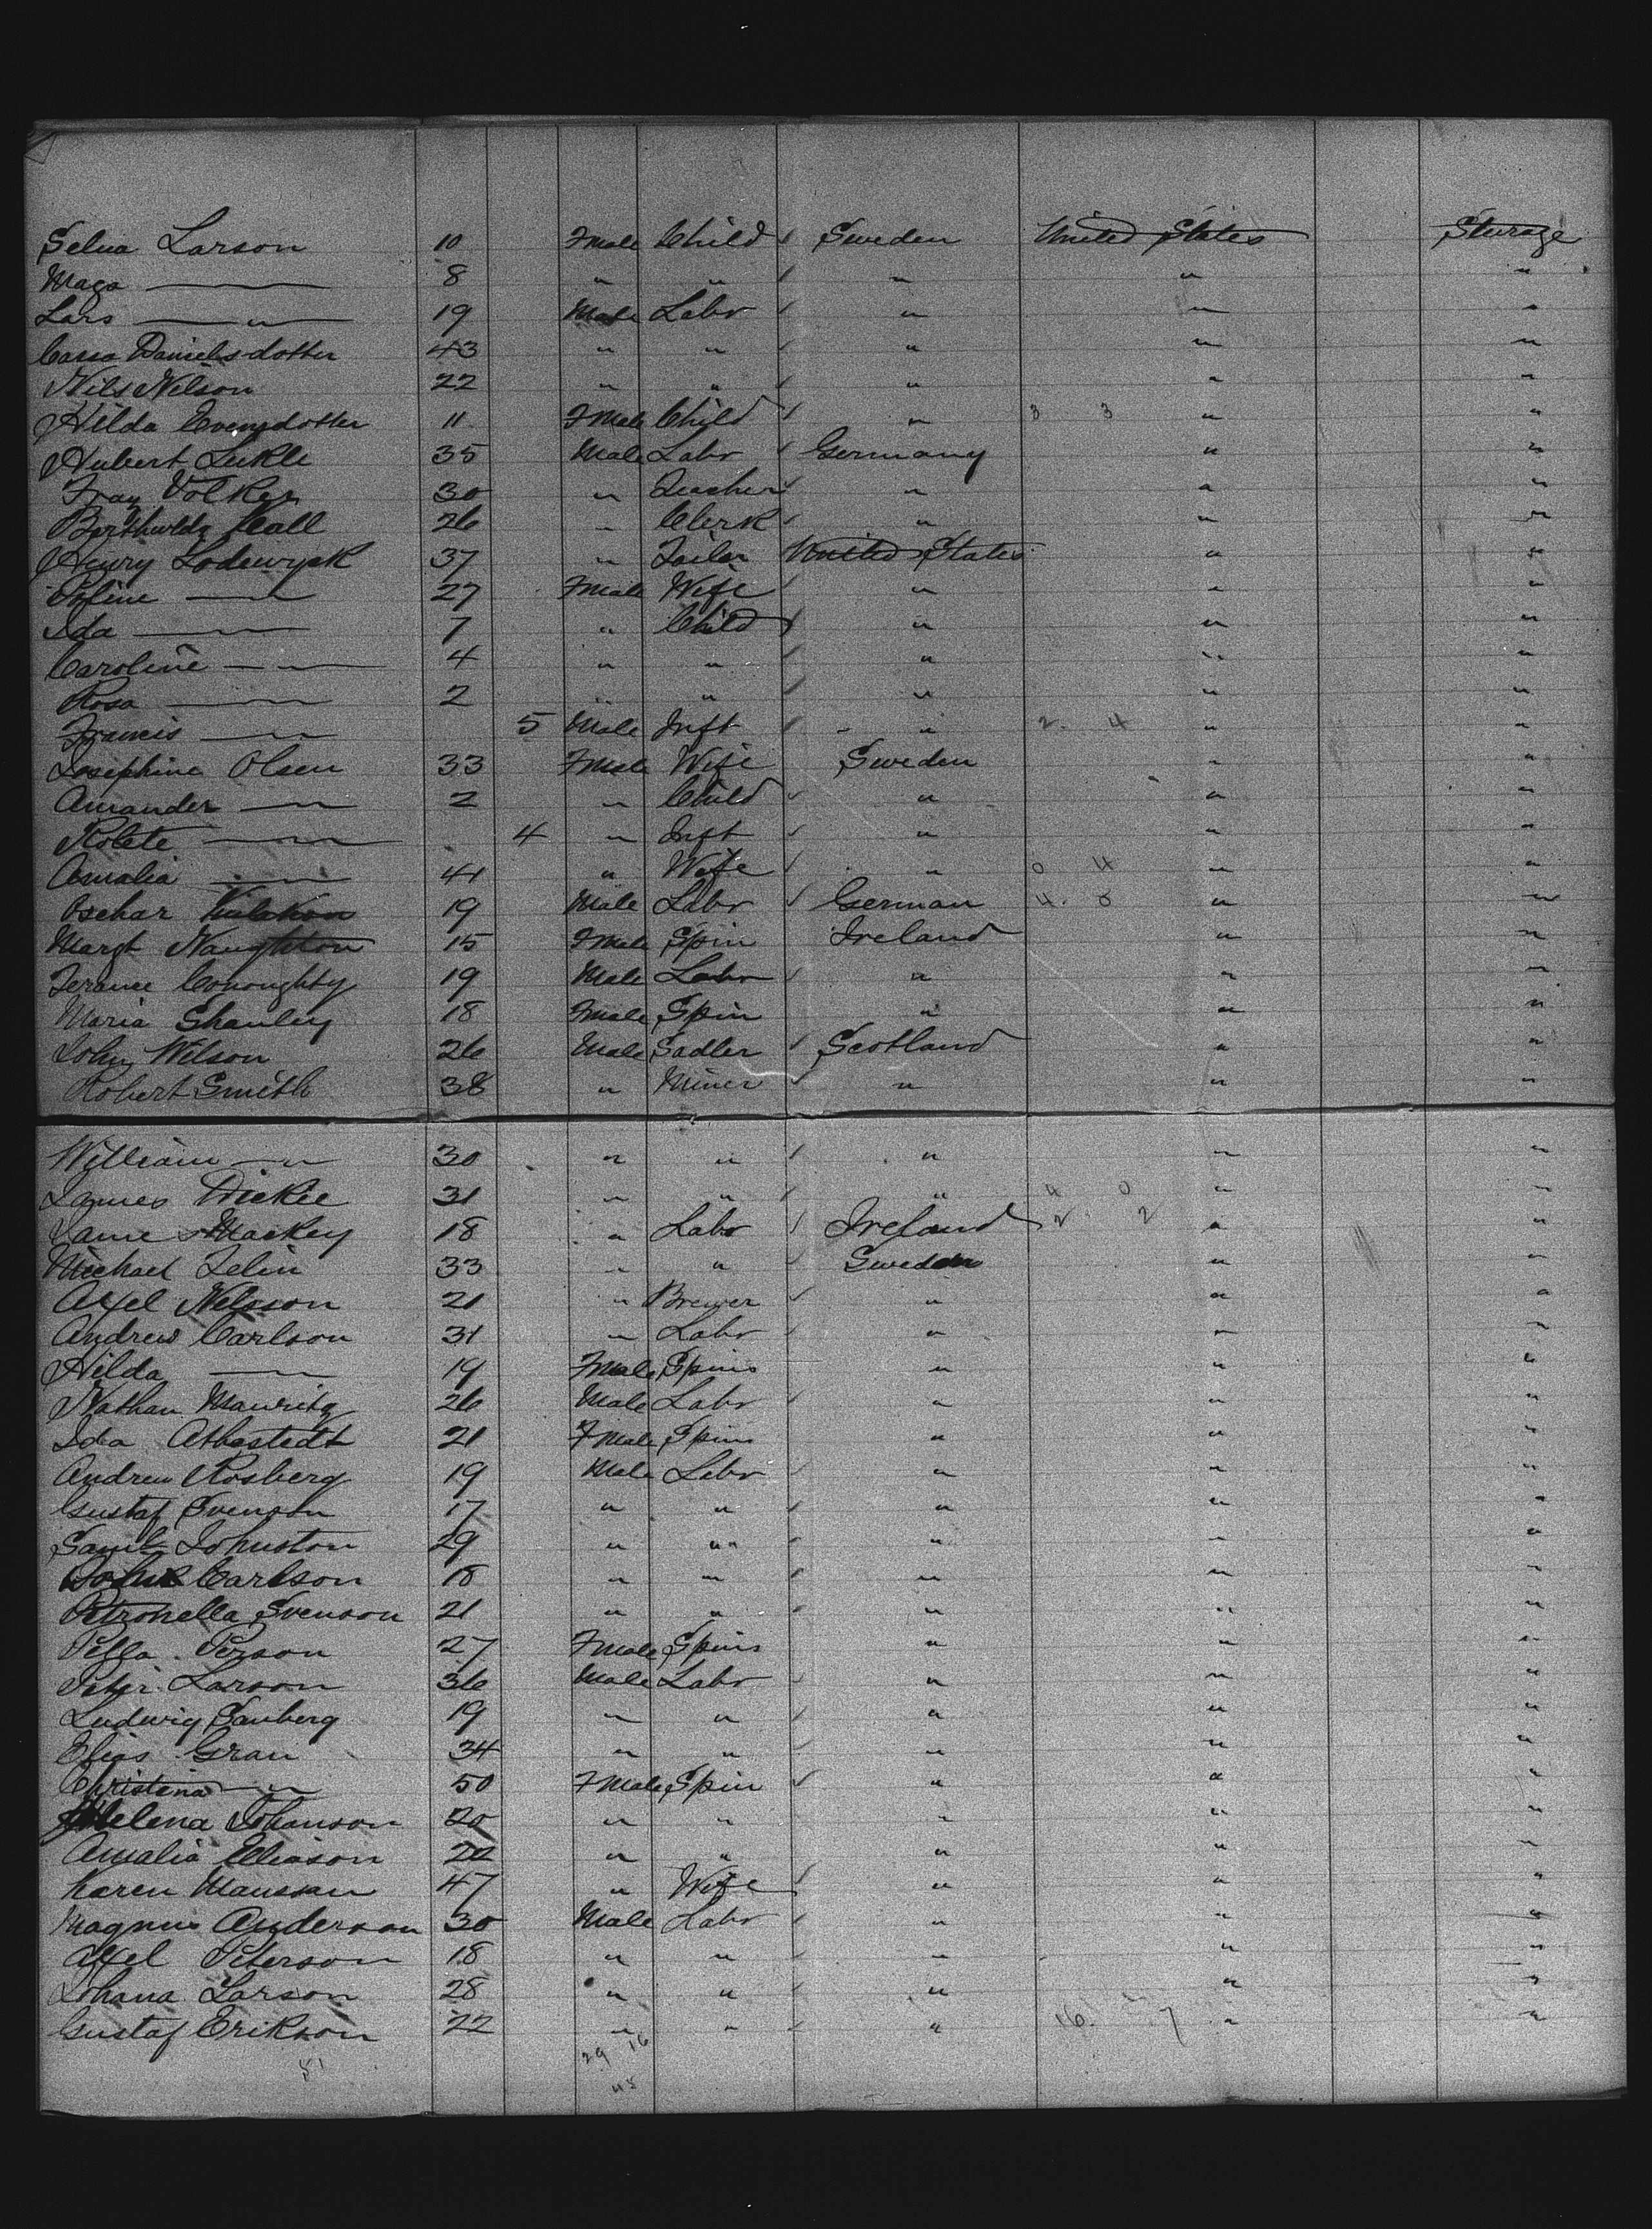 Selua Larson 10 Fmale Child Sweden United States Sturage
Maga —"— 8 " " " " "
Lars —"— 19 Male Labr " " "
Cassa Danielsdotter 43 " " " " "
Nils Nelson 22 " " " " "
Hilda Evensdotter 11 Fmale Child " 3 3 " "
Hubert Lukle 35 Male Labr Germany " "
Fray Volker 30 " Teacher " " "
Berthwald Kall 26 " Clerk " " "
Henry Lodewyck 37 " Tailor United States " "
Pfine —"— 27 Fmale Wife " " "
Ida —"— 7 " Child " " "
Caroline —"— 4 " " " " "
Rosa —"— 2 " " " " "
Francis —"— 5 Male Inft " 2. 4 " "
Josephine Olsen 33 Fmale Wife Sweden " "
Amander —"— 2 " Child " " "
Rolete —"— 4 " Inft " " "
Amalia —"— 41 " Wife " 0 4 " "
Oschar 19 Male Labr German 4. 0 " "
Margt Naughton 15 Fmale Spin Ireland " "
Terance Conoughty 19 Male Labr " " "
Maria Shanley 18 Fmale Spin " " "
John Wilson 26 Male Sadler Scotland " "
Robert Smith 38 " Miner " " "
William —"— 30 " " " " "
James Dickie 31 " " " 4 0 " "
Jame Mackey 18 " Labr Ireland 2. 2 " "
Michael Zelin 33 " " Sweden " "
Axel Nelsson 21 " Brewer " " "
Andrew Carlson 31 " Labr " " "
Hilda —"— 19 Fmale Spins " " "
Nathan Mauritz 26 Male Labr " " "
Ida Athestedt 21 Fmale Spins " " "
Andrew Rosberg 19 Male Labr " " "
Gustaf Svenson 17 " " " " "
Saml Johnston 29 " " " " "
John Carlson 18 " " " " "
Petronella Svenson 21 " " " " "
Pella Person 27 Fmale Spins " " "
Peter Larson 36 Male Labr " " "
Ludwig Sanberg 19 " " " " "
Elias Gran 34 " " " " "
Christina —"— 50 Fmale Spin " " "
Helena Johanson 20 " " " " "
Amalia Eliason 22 " " " " "
Karen Mausson 47 " Wife " " "
Magnus Anderson 30 Male Labr " " "
Axel Peterson 18 " " " " "
Johana Larson 28 " " " " "
Gustaf Erikson 22 " " " 16. 7 " "
51 29 16
45